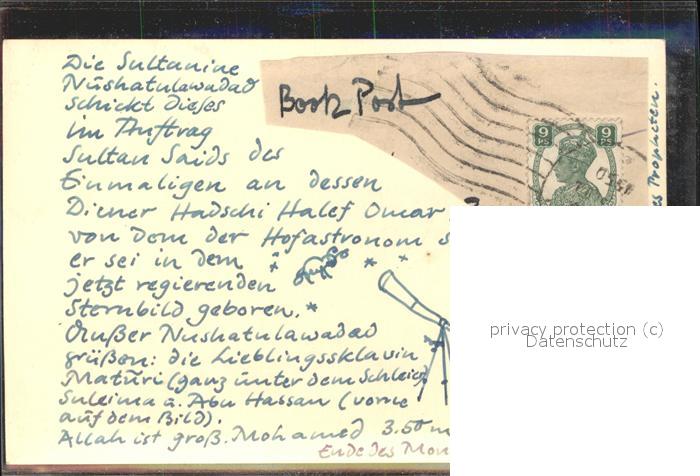 Die Sultanine
Nushatulawadad
schickt dieses
im Auftrag
Sultan Saids des
Einmaligen an dessen
Diener Hadschi Halef Omar
von dem der Hofastronom s
er sei in dem
jetzt regierenden
Sternbild geboren.*
Außer Nushatulawadad
grüßen: die Lieblingssklavin
Matūri (ganz unter dem Schleier)
Suleima u. Abu Hassan (vorne
auf dem Bild).
Allah ist groß. Mohamed 3.50 m
Ende des Mon
Book Post
9 9
PS PS
es Propheten.
privacy protection (c)
Datenschutz